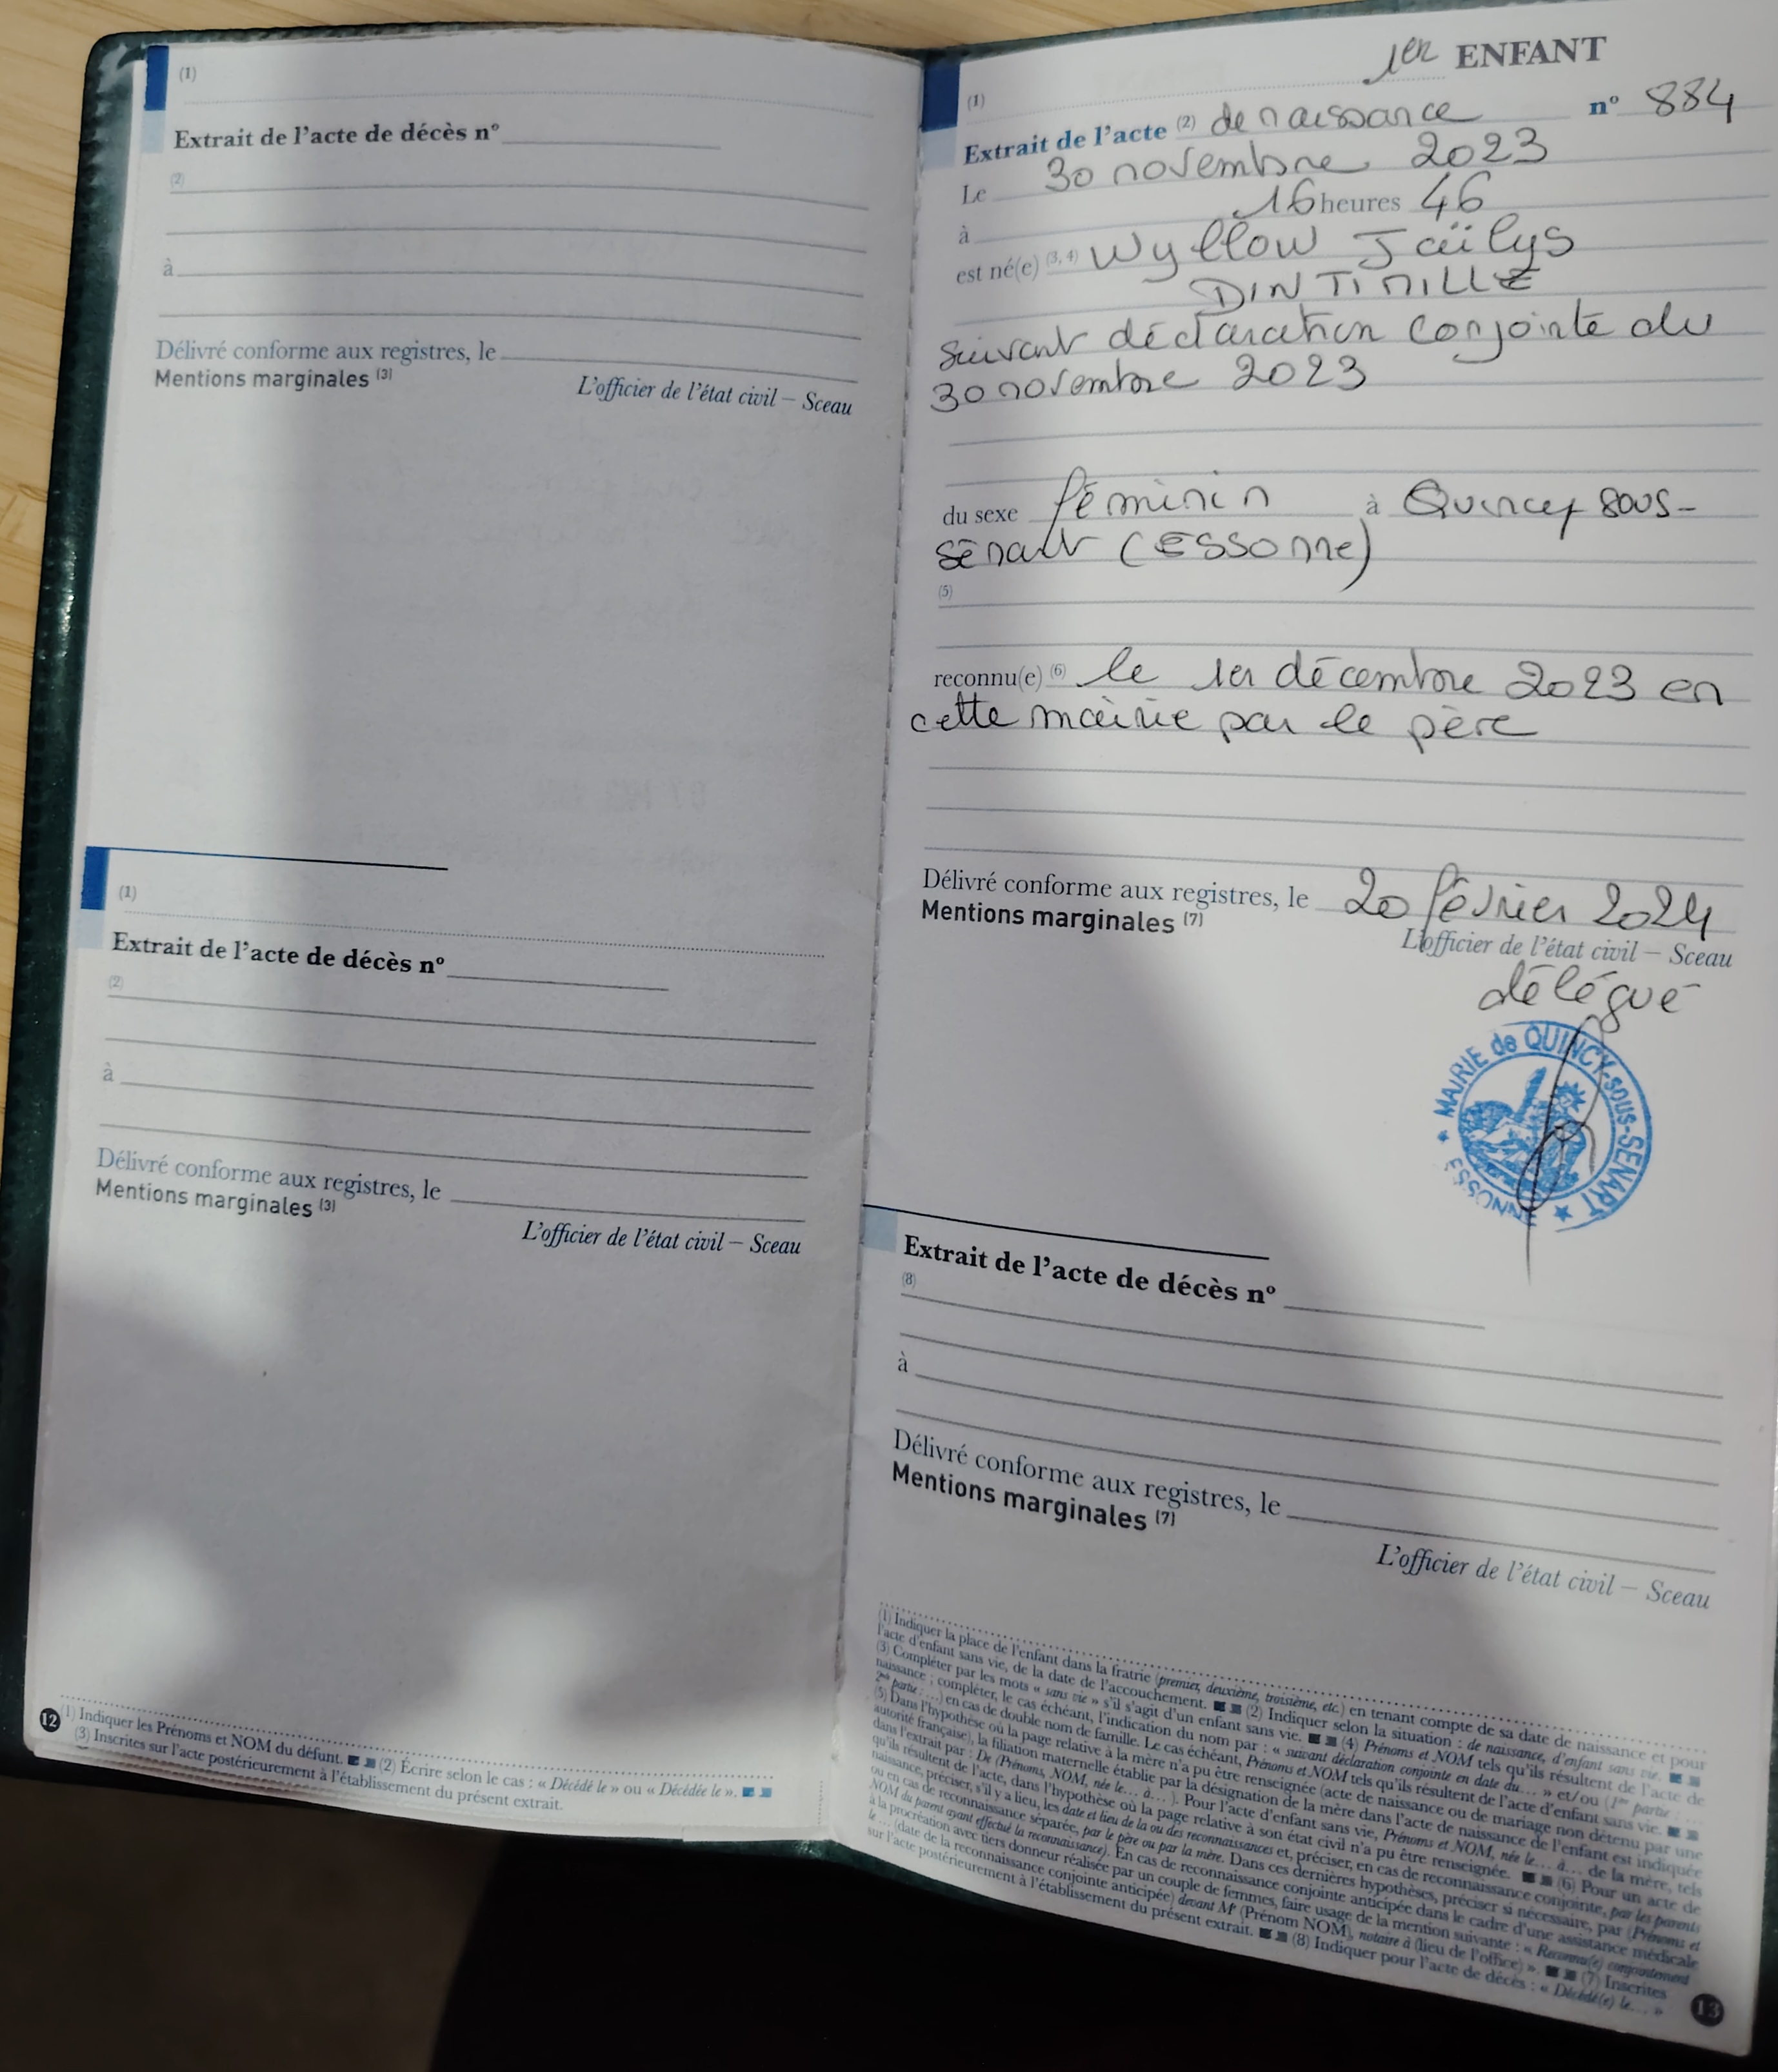 (1)
Extrait de l'acte de décès nº
(2)
à
Délivré conforme aux registres, le
Mentions marginales (3)
L'officier de l'état civil – Sceau
(1)
Extrait de l'acte de décès nº
(2)
à
Délivré conforme aux registres, le
Mentions marginales (3)
L'officier de l'état civil – Sceau
12
(1) Indiquer les Prénoms et NOM du défunt. (2) Écrire selon le cas : « Décédé le » ou « Décédée le ».
(3) Inscrites sur l'acte postérieurement à l'établissement du présent extrait.
1er ENFANT
(1)
Extrait de l'acte (2) de naissance nº 884
Le 30 novembre 2023
à 16 heures 46
est né(e) (3, 4) Wyllow Jaïlys
DINTIMILLE
suivant déclaration conjointe du
30 novembre 2023
du sexe féminin à Quincy sous-
Sénart (Essonne)
(5)
reconnu(e) (6) le 1er décembre 2023 en
cette mairie par le père
Délivré conforme aux registres, le 20 février 2024
Mentions marginales (7)
L'officier de l'état civil – Sceau
délégué
MAIRIE de QUINCY-SOUS-SÉNART
ESSONNE
Extrait de l'acte de décès nº
(8)
à
Délivré conforme aux registres, le
Mentions marginales (7)
L'officier de l'état civil – Sceau
(1) Indiquer la place de l'enfant dans la fratrie (premier, deuxième, troisième, etc.) en tenant compte de sa date de naissance et pour
l'acte d'enfant sans vie, de la date de l'accouchement. (2) Indiquer selon la situation : de naissance, d'enfant sans vie.
(3) Compléter par les mots « sans vie » s'il s'agit d'un enfant sans vie. (4) Prénoms et NOM tels qu'ils résultent de l'acte de
naissance ; compléter, le cas échéant, l'indication du nom par : « suivant déclaration conjointe en date du... » et/ou (1re partie : ...
2nde partie : ...) en cas de double nom de famille. Le cas échéant, Prénoms et NOM tels qu'ils résultent de l'acte d'enfant sans vie.
(5) Dans l'hypothèse où la page relative à la mère n'a pu être renseignée (acte de naissance ou de mariage non détenu par une
autorité française), la filiation maternelle établie par la désignation de la mère dans l'acte de naissance de l'enfant est indiquée
dans l'extrait par : De (Prénoms, NOM, née le... à... ). Pour l'acte d'enfant sans vie, Prénoms et NOM, née le... à... de la mère, tels
qu'ils résultent de l'acte, dans l'hypothèse où la page relative à son état civil n'a pu être renseignée. (6) Pour un acte de
naissance, préciser, s'il y a lieu, les date et lieu de la ou des reconnaissances et, préciser, en cas de reconnaissance conjointe, par les parents
ou en cas de reconnaissance séparée, par le père ou par la mère. Dans ces dernières hypothèses, préciser si nécessaire, par (Prénoms et
NOM du parent ayant effectué la reconnaissance). En cas de reconnaissance conjointe anticipée dans le cadre d'une assistance médicale
à la procréation avec tiers donneur réalisée par un couple de femmes, faire usage de la mention suivante : « Reconnu(e) conjointement
le ... (date de la reconnaissance conjointe anticipée) devant Me (Prénom NOM), notaire à (lieu de l'office) ». (7) Inscrites
sur l'acte postérieurement à l'établissement du présent extrait. (8) Indiquer pour l'acte de décès : « Décédé(e) le... »
13